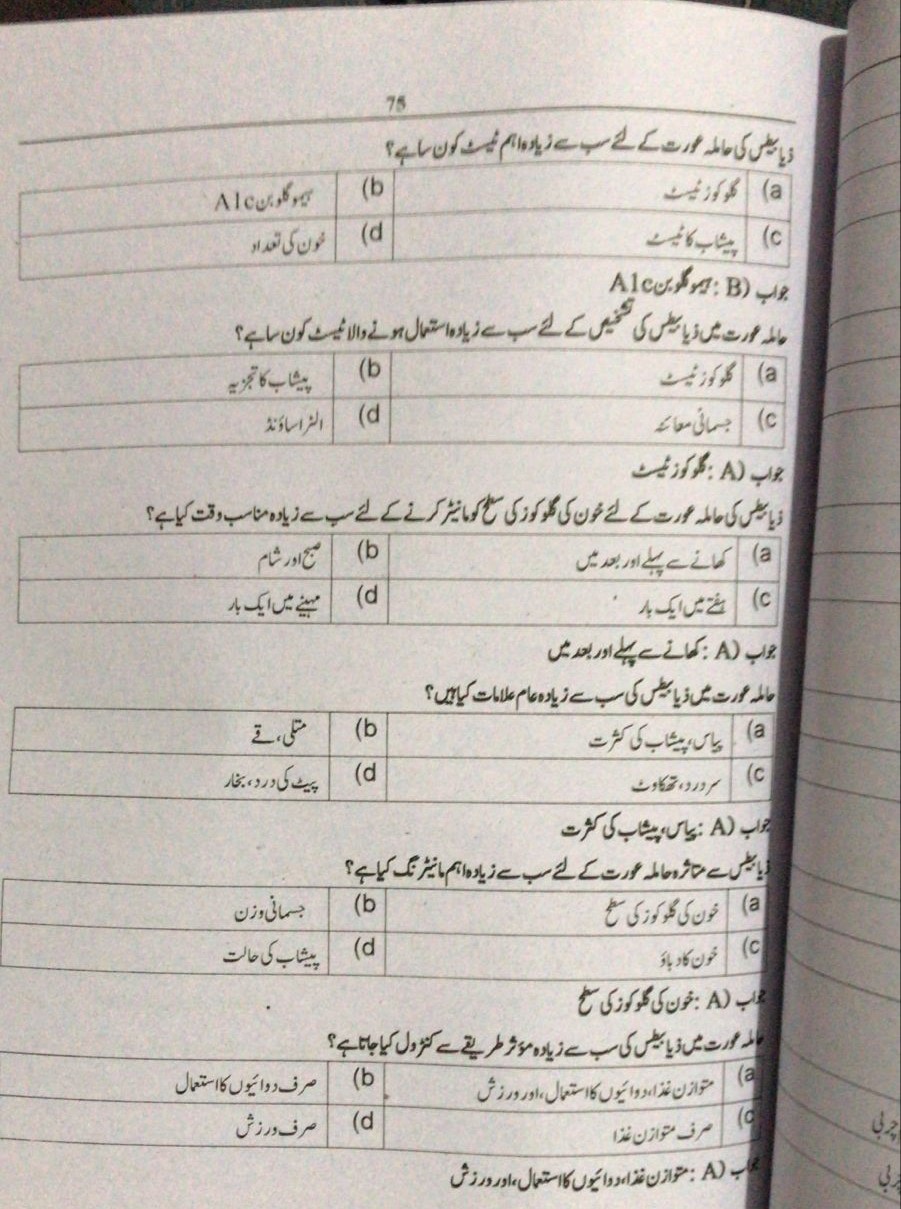 75
ذیابیطس کی حاملہ عورت کے لئے سب سے زیادہ اہم ٹیسٹ کون سا ہے؟
(a گلوکوز ٹیسٹ (b ہیموگلوبن A1c
(c پیشاب کا ٹیسٹ (d خون کی تعداد
جواب (B : ہیموگلوبن A1c
حاملہ عورت میں ذیابیطس کی تشخیص کے لئے سب سے زیادہ استعمال ہونے والا ٹیسٹ کون سا ہے؟
(a گلوکوز ٹیسٹ (b پیشاب کا تجزیہ
(c جسمانی معائنہ (d الٹراساؤنڈ
جواب (A : گلوکوز ٹیسٹ
ذیابیطس کی حاملہ عورت کے لئے خون کی گلوکوز کی سطح کو مانیٹر کرنے کے لئے سب سے زیادہ مناسب وقت کیا ہے؟
(a کھانے سے پہلے اور بعد میں (b صبح اور شام
(c ہفتے میں ایک بار (d مہینے میں ایک بار
جواب (A : کھانے سے پہلے اور بعد میں
حاملہ عورت میں ذیابیطس کی سب سے زیادہ عام علامات کیا ہیں؟
(a پیاس، پیشاب کی کثرت (b متلی، قے
(c سر درد، تھکاوٹ (d پیٹ کی درد، بخار
جواب (A : پیاس، پیشاب کی کثرت
ذیابیطس سے متاثرہ حاملہ عورت کے لئے سب سے زیادہ اہم مانیٹرنگ کیا ہے؟
(a خون کی گلوکوز کی سطح (b جسمانی وزن
(c خون کا دباؤ (d پیشاب کی حالت
جواب (A : خون کی گلوکوز کی سطح
حاملہ عورت میں ذیابیطس کی سب سے زیادہ مؤثر طریقے سے کنٹرول کیا جاتا ہے؟
(a متوازن غذا، دوائیوں کا استعمال، اور ورزش (b صرف دوائیوں کا استعمال
(c صرف متوازن غذا (d صرف ورزش
جواب (A : متوازن غذا، دوائیوں کا استعمال، اور ورزش
چربی